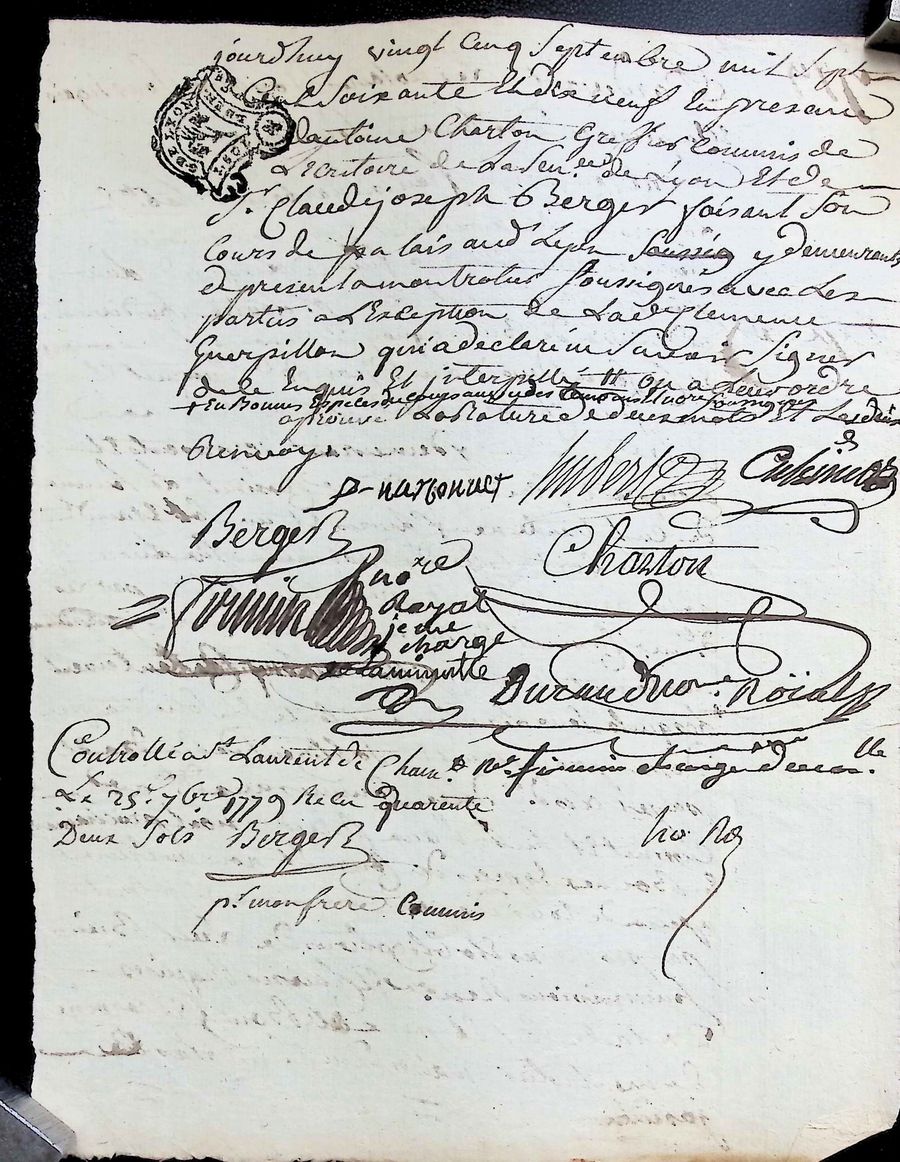 jourdhuy vingt cinq Septembre mil Sept
Soixante Et dix neuf En presance
dantoine Charton Greffier Commis de
L'Ecritoire de La Sen.ée de Lyon Et de
Sr. Claude joseph Berger faisant Son
Cours de palais aud. Lyon Soussig y demeurants
a present a montrotier Soussignés avec Les
parties a L'Exception de Ladte Clemence
Guerpillon qui a declaré ne Savoir Signer
de ce Enquis Et interpellé
+ En Bonnes Especes du Cours
aprouvé La Rature de deux mots Et Les deux
Renvoys
Berger
Charton
no.re
Royal
je me
charge
de la minutte
Durand no.re Roial
Controllé a St. Laurent de Cham. firmin chargé
Le 25e. 7bre 1779 Recu Quarente
Deux Sols Berger
pr. mon frere Commis